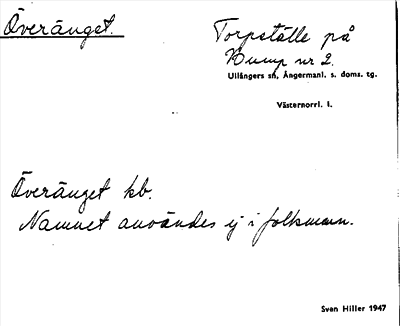 Överänget.
Torpställe på
Bump nr 2.
Ullångers sn, Ångermanl. s. doms. tg.
Västernorrl. l.
Överänget kb.
Namnet användes ej i folkmun.
Sven Hiller 1947